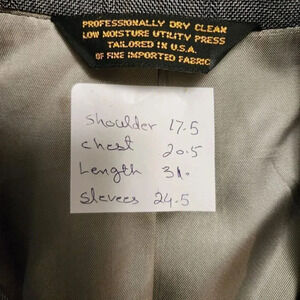 PROFESSIONALLY DRY CLEAN
LOW MOISTURE UTILITY PRESS
TAILORED IN U.S.A.
OF FINE IMPORTED FABRIC
Shoulder 17.5
Chest 20.5
Length 31.
Sleeves 24.5